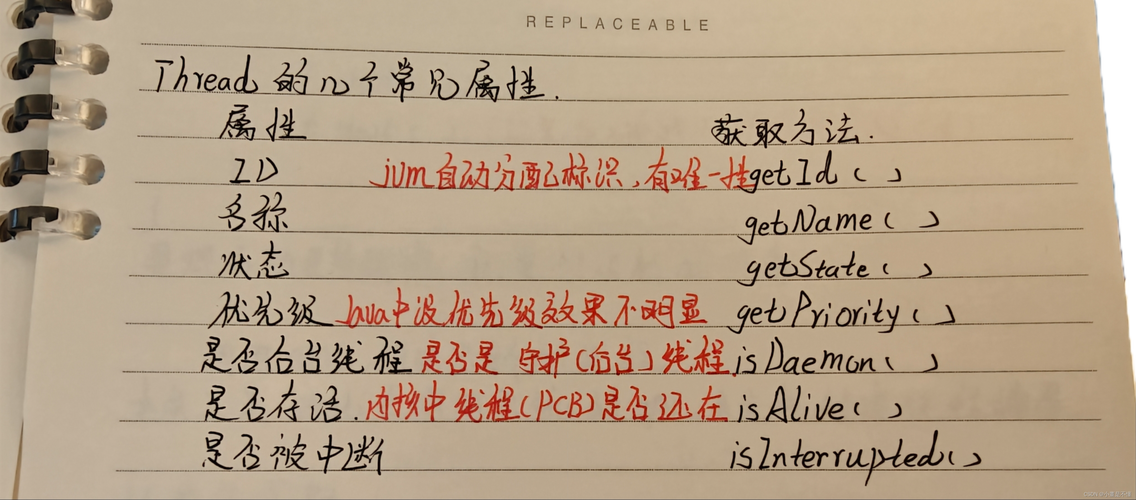 REPLACEABLE
Thread 的几个常见属性.
属性 获取方法.
ID jvm自动分配标识,有唯一性 getId()
名称 getName()
状态 getState()
优先级 Java中设优先级效果不明显 getPriority()
是否后台线程 是否是守护(后台)线程 isDaemon()
是否存活. 内核中线程(PCB)是否还在 isAlive()
是否被中断 isInterrupted()